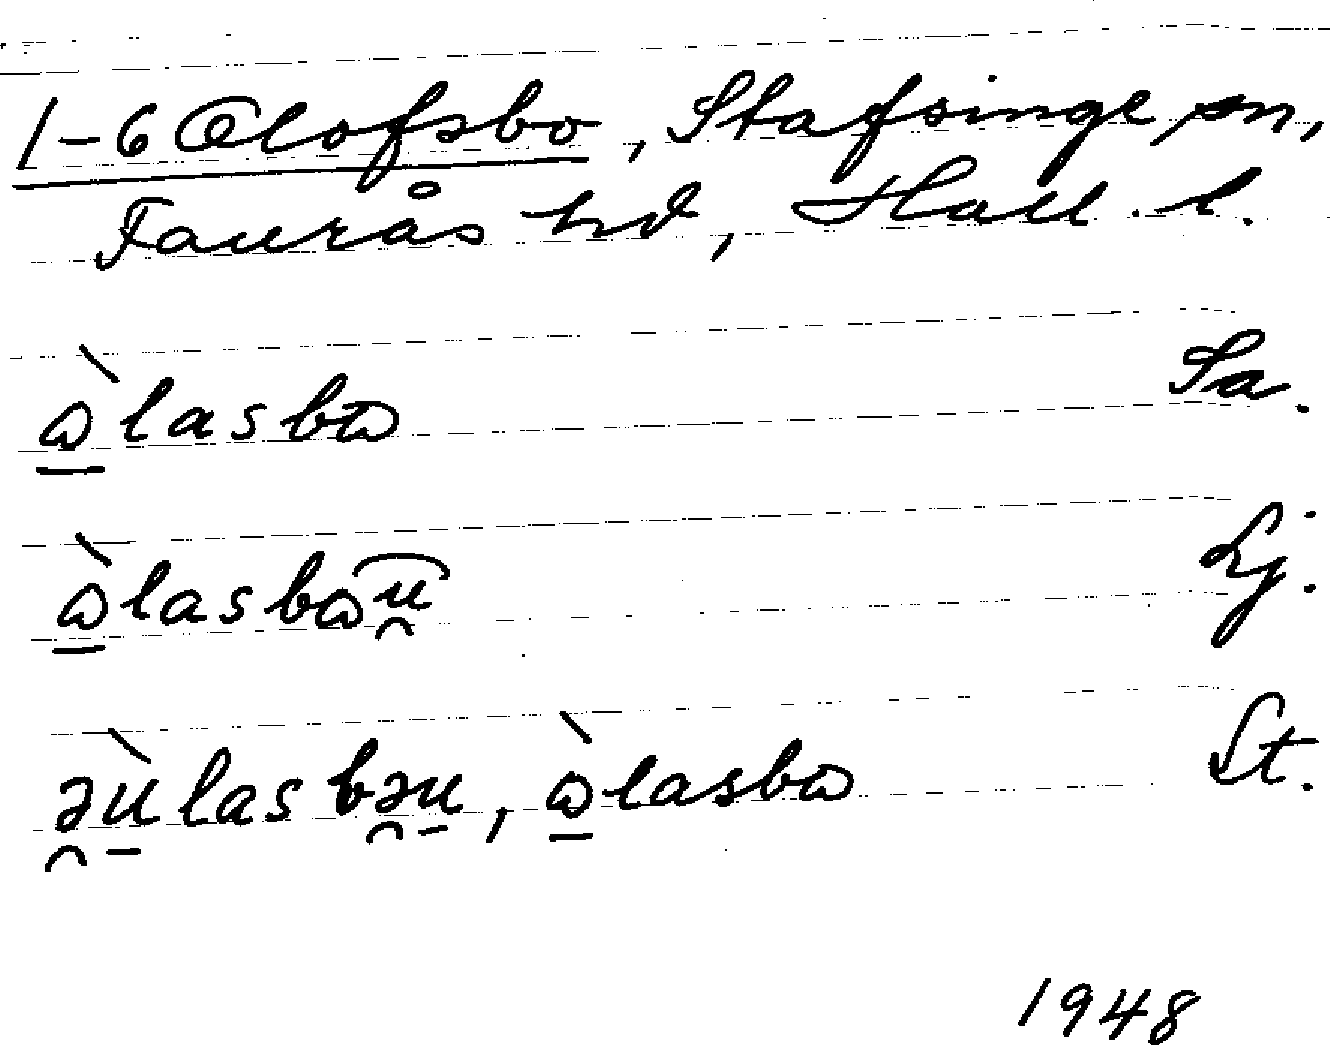 1-6 Olofsbo, Stafsinge sn,
Faurås hd, Hall. l.
ὼ̱lasbω Sa.
ὼ̱lasbωu̯ Lj.
ə̯ù̱lasbə̯u̱, ὼ̱lasbω St.
1948